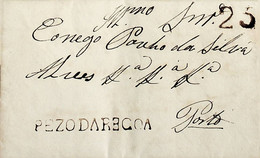 Illmo Snr. 25
Conego Paulo da Silva
Alves
Porto
PEZODAREGOA